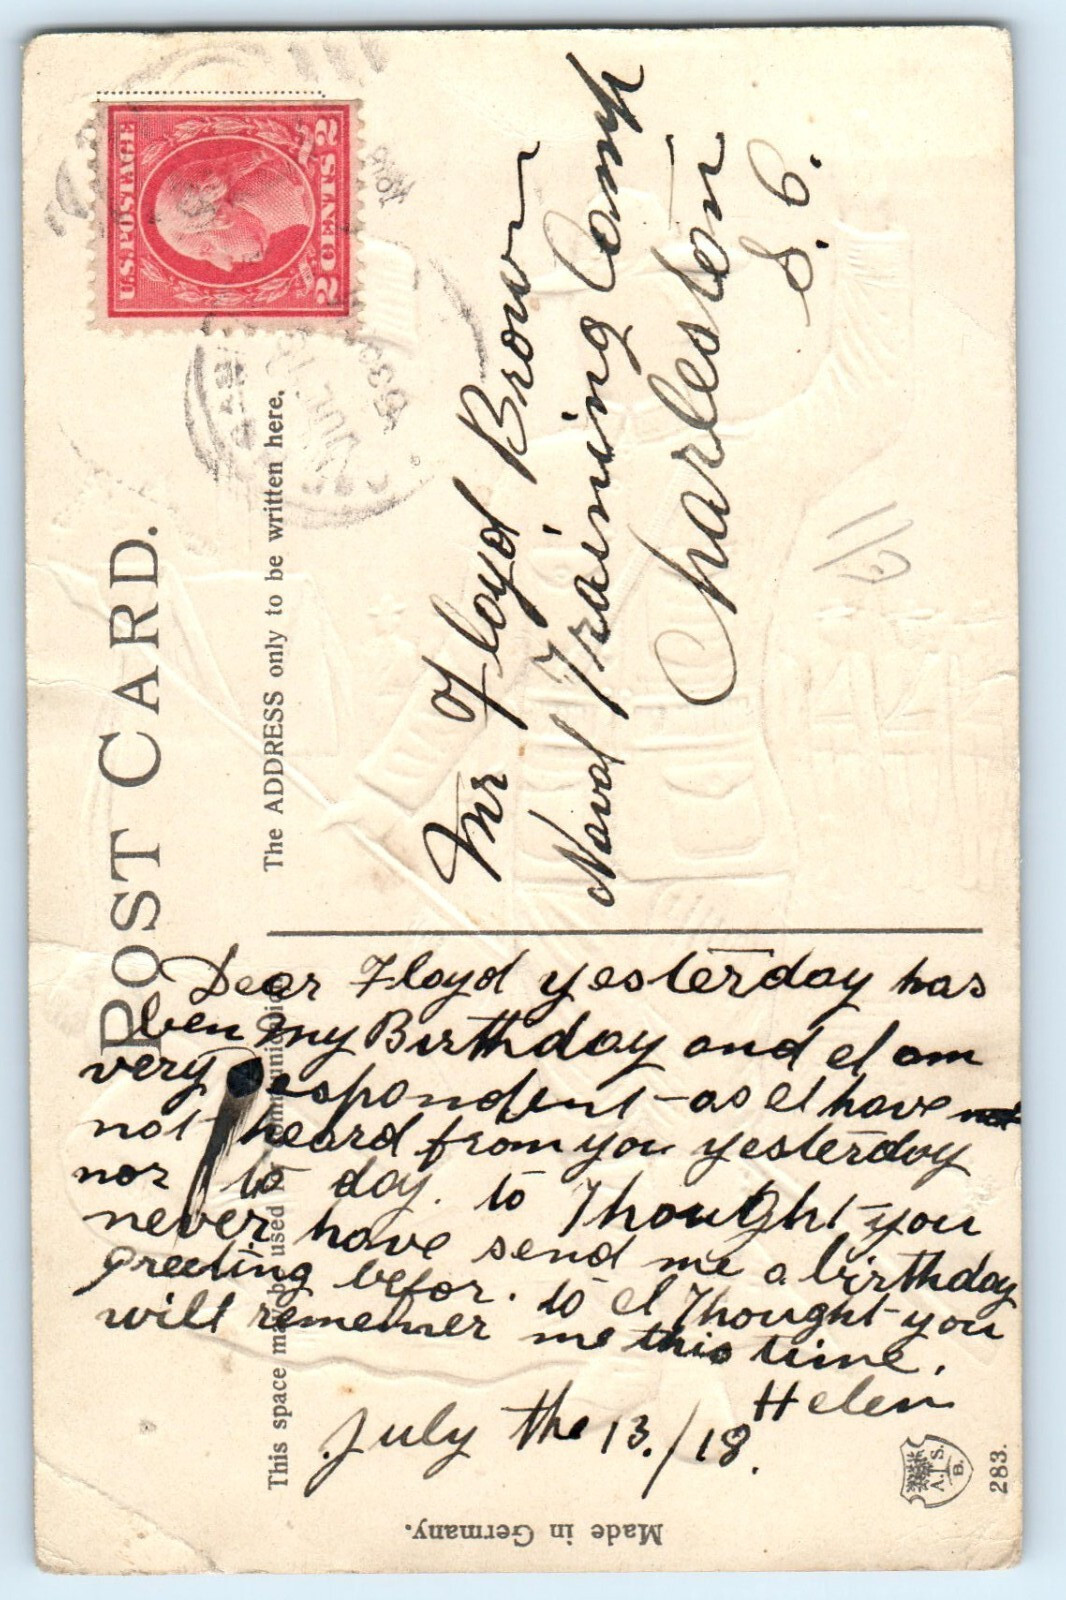 POST CARD.
The ADDRESS only to be written here.
U.S. POSTAGE
2 CENTS 2
JUL
530
1918
Mr Floyd Brown
Naval Training Camp
Charleston
S. C.
Dear Floyd yesterday has
ben my Birthday and I am
very espondent - as I have not
not heard from you yesterday
nor to day. to Thought you
never have send me a birthday
greeting befor. to I Thought you
will rememer me this time.
Helen
July the 13./18.
This space may be used
Made in Germany.
A.J.S.
B.
283.